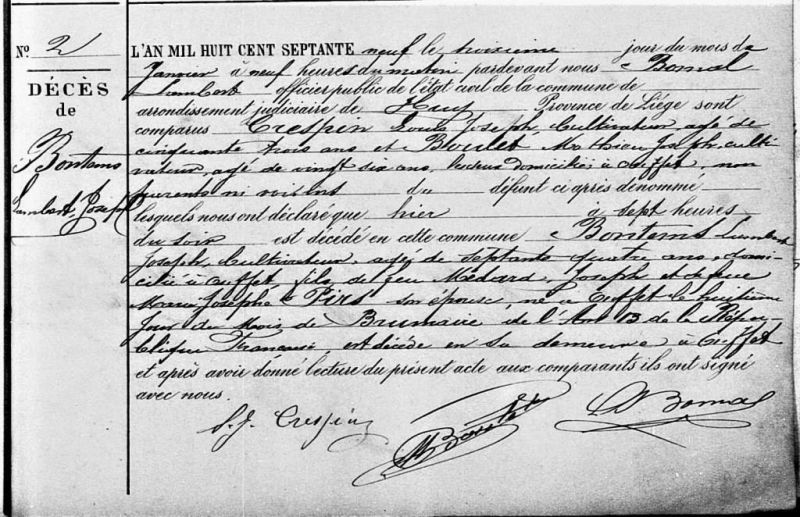 N° 2
DÉCÈS
de
Bontems
Lambert Joseph
L'AN MIL HUIT CENT SEPTANTE neuf le troisième jour du mois de
Janvier à neuf heures du matin pardevant nous Bomal
Lambert officier public de l'état civil de la commune de
arrondissement judiciaire de Huy Province de Liége sont
comparus Crespin Louis Joseph, Cultivateur, agé de
cinquante trois ans et Boulet Mathieu Joseph, culti-
vateur, agé de vingt six ans, les deux domiciliés à Ouffet, non
parents ni voisins du défunt ci après dénommé
lesquels nous ont déclaré que hier à sept heures
du soir est décédé en cette commune Bontems Lambert
Joseph, Cultivateur agé de septante quatre ans, domi-
cilié à Ouffet fils de feu Médard Joseph et de feue
Marie Josephe Pirs son épouse, né à Ouffet le huitième
jour du Mois de Brumaire de l'An 13 de la Répu-
blique Française, est décédé en sa demeure à Ouffet
et après avoir donné lecture du présent acte aux comparants ils ont signé
avec nous.
L. J. Crespin
M Boulet
Bomal